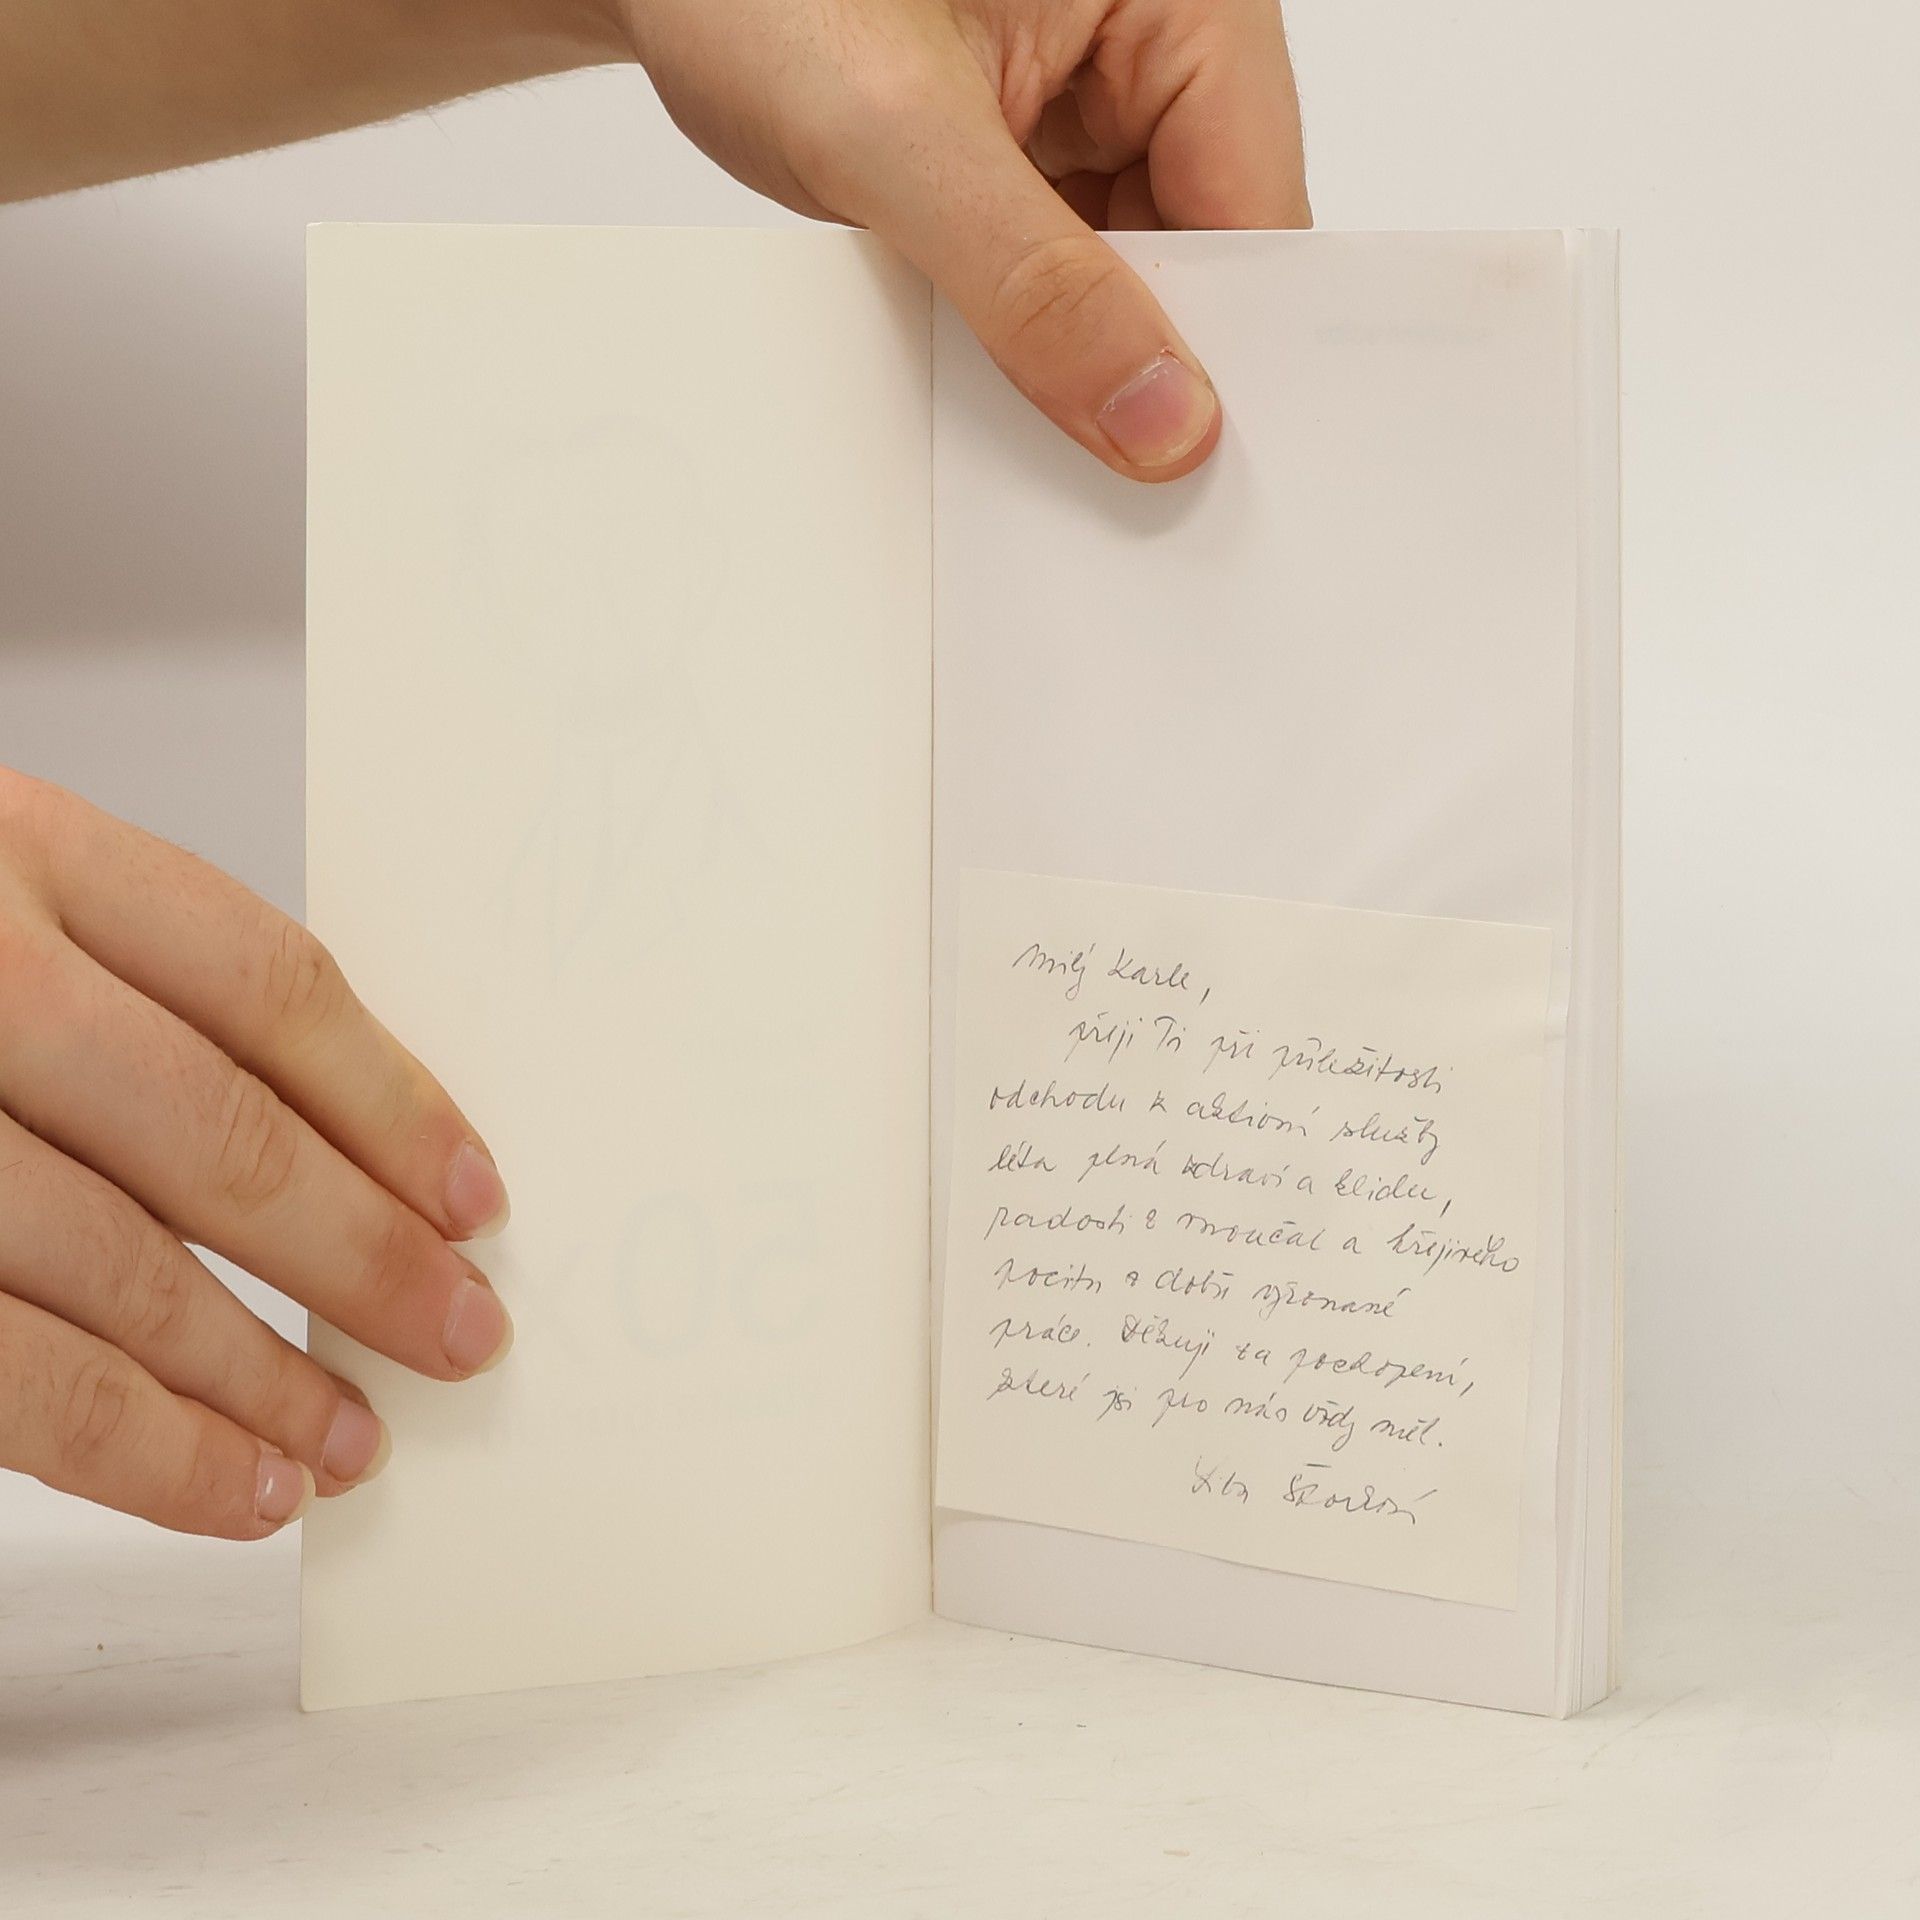 Milý Karle,
přeji Ti při příležitosti
odchodu z aktivní služby
léta plná zdraví a klidu,
radosti z vnoučat a hřejivého
pocitu z dobře vykonané
práce. Děkuji za pochopení,
které jsi pro nás vždy měl.